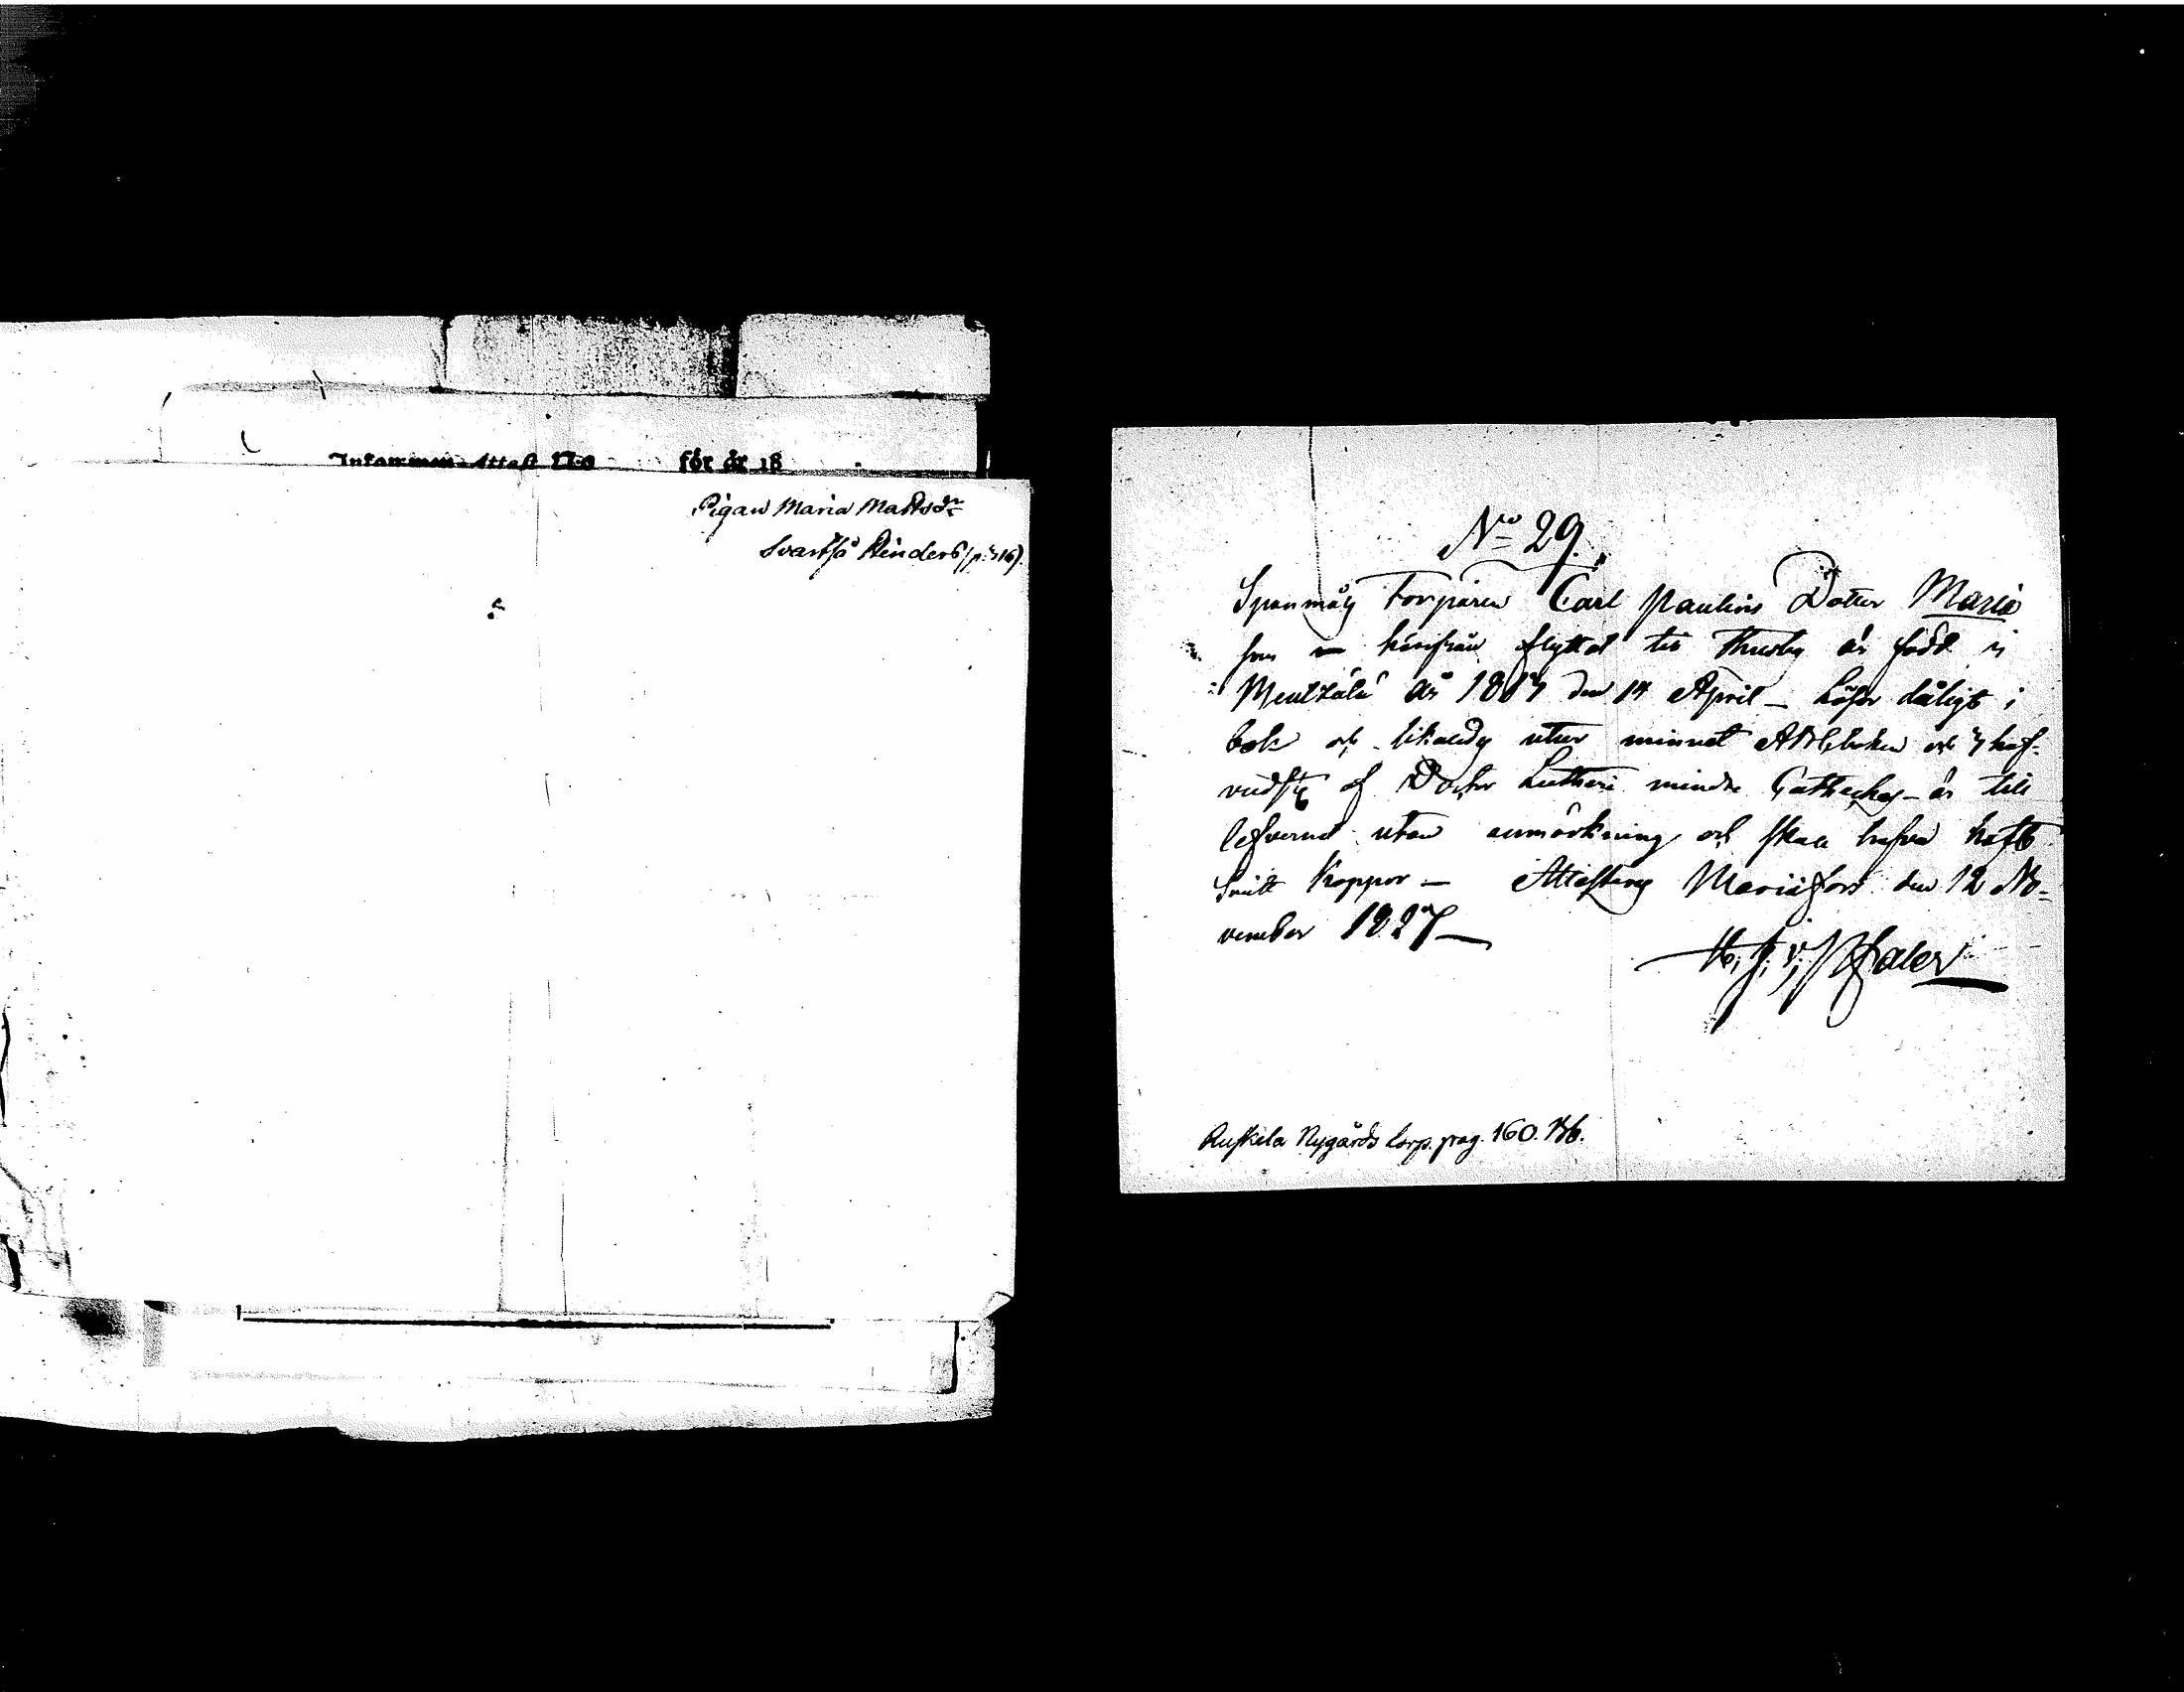 Inkommen Attest N:o för år 18
Pigan Maria Mattsdr
Svartså Hinders (p. 716).
No 29.
Torparen Carl Paulins Dotter Maria
som härifrån flyttat till Thusby är född i
Mentzälä år 1807 den 14 April – Läser dåligt i
bok och likaledes utur minnet ABCboken och 7 huf-
vudst af Doctor Lutheri mindre Catheches – är till
lefvernet utan anmärkning och skall hafva haft
Koppor – Attesteras Mariæfors den 12 No-
vember 1827 –
Ruskela Nygårds torp. pag. 160.